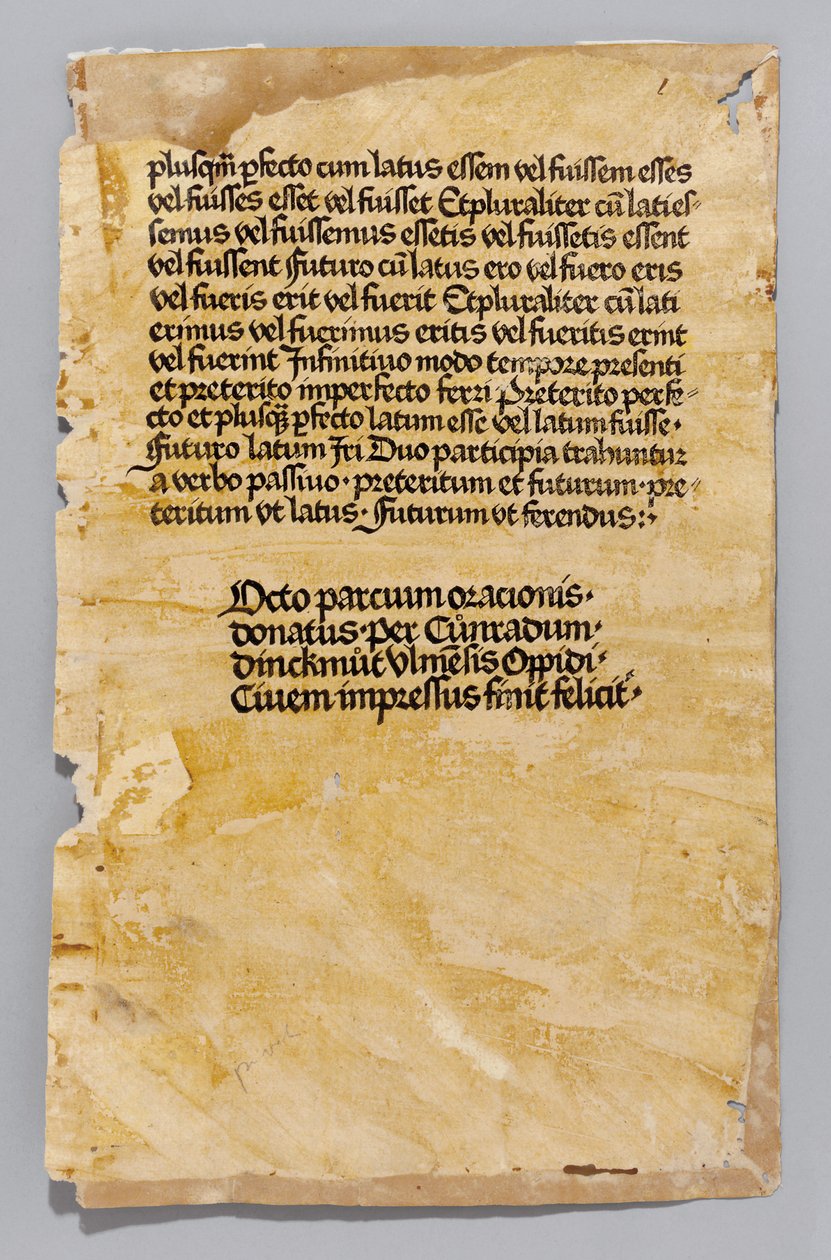 plusqm̄ ꝑfecto cum latus essem vel fuissem esses
vel fuisses esset vel fuisset Etpluraliter cū laties⸗
semus vel fuissemus essetis vel fuissetis essent
vel fuissent Futuro cū latus ero vel fuero eris
vel fueris erit vel fuerit Etpluraliter cū lati
erimus vel fuerimus eritis vel fueritis erint
vel fuerint Infinitiuo modo tempore presenti
et preterito imperfecto ferri Preterito perfe⸗
cto et plusqꝫ̄ ꝑfecto latum esse vel latum fuisse·
Futuro latum Iri Duo participia trahuntur
a verbo passiuo· preteritum et futurum· pre⸗
teritum vt latus· Futurum vt ferendus:·
Octo parcium oracionis·
donatus· Per Cůnradum·
dinckmůt Vlmēsis Oppidi·
Ciuem impressus finit felicit᷒·